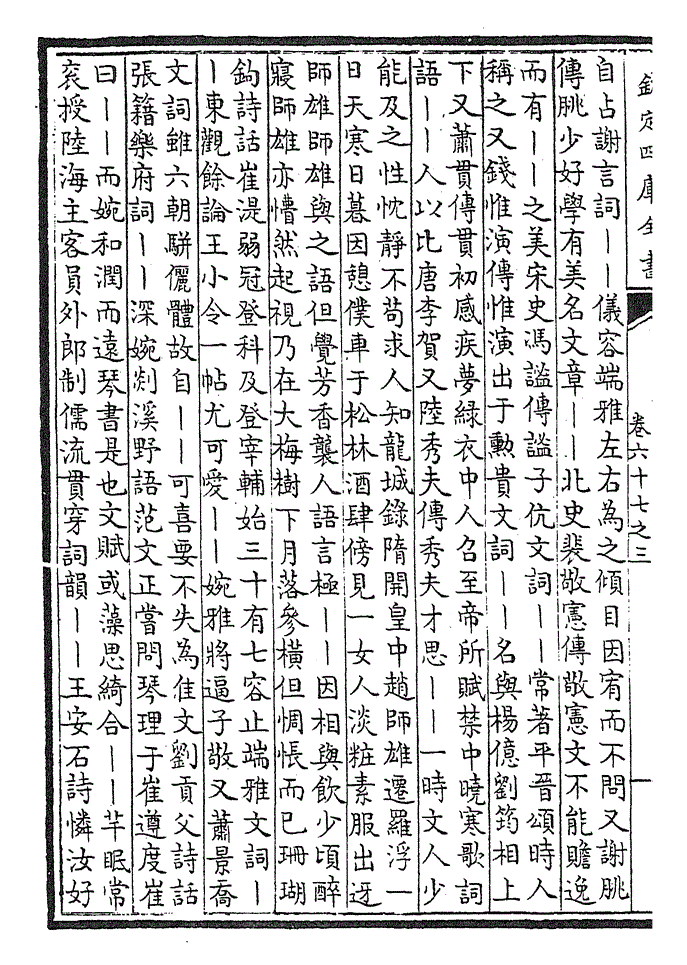 欽定四庫全書
卷六十七之三
一
自占謝言詞丨丨儀容端雅左右為之傾目因宥而不問又謝朓
傳朓少好學有美名文章丨丨北史裴敬憲傳敬憲文不能贍逸
而有丨丨之美宋史馮謐傳謐子伉文詞丨丨常著平晉頌時人
稱之又錢惟演傳惟演出于勲貴文詞丨丨名與楊億劉筠相上
下又蕭貫傳貫初感疾夢緑衣中人召至帝所賦禁中曉寒歌詞
語丨丨人以比唐李賀又陸秀夫傳秀夫才思丨丨一時文人少
能及之性忱靜不苟求人知龍城錄隋開皇中趙師雄遷羅浮一
日天寒日暮因憩僕車于松林酒肆傍見一女人淡粧素服出迓
師雄師雄與之語但覺芳香襲人語言極丨丨因相與飲少頃醉
寢師雄亦懵然起視乃在大梅樹下月落參橫但惆悵而已珊瑚
鈎詩話崔湜弱冠登科及登宰輔始三十有七容止端雅文詞丨
丨東觀餘論王小令一帖尤可愛丨丨婉雅將逼子敬又蕭景喬
文詞雖六朝駢儷體故自丨丨可喜要不失為佳文劉貢父詩話
張籍樂府詞丨丨深婉剡溪野語范文正嘗問琴理于崔遵度崔
曰丨丨而婉和潤而遠琴書是也文賦或藻思綺合丨丨芊眠常
衮授陸海主客員外郎制儒流貫穿詞韻丨丨王安石詩憐汝好